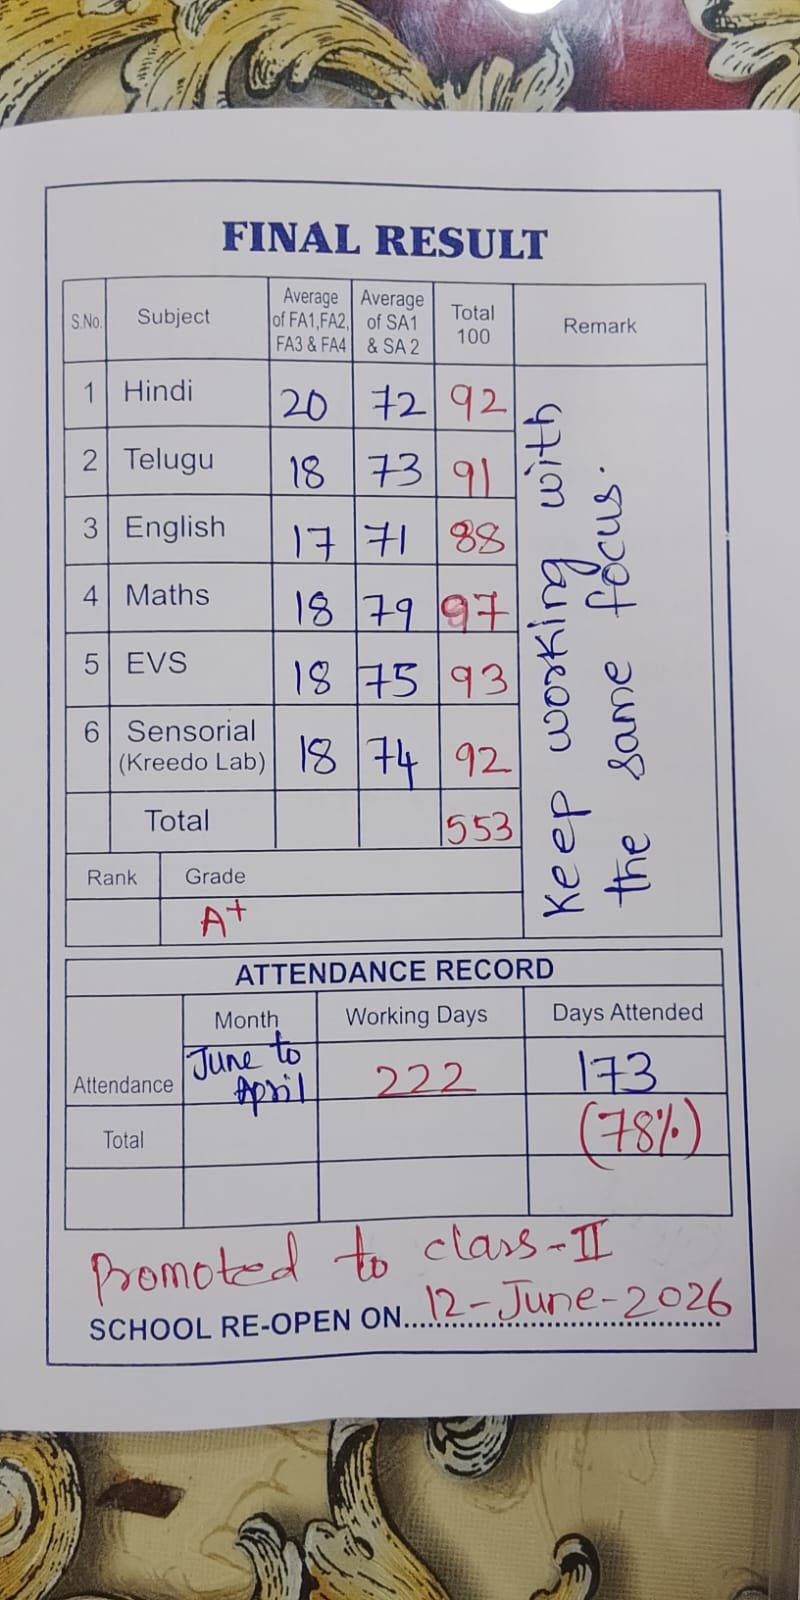 FINAL RESULT
S.No. Subject Average of FA1,FA2, FA3 & FA4 Average of SA1 & SA 2 Total 100 Remark
1 Hindi 20 72 92
2 Telugu 18 73 91
3 English 17 71 88
4 Maths 18 79 97
5 EVS 18 75 93
6 Sensorial (Kreedo Lab) 18 74 92
Total 553
Keep working with
the same focus.
Rank Grade
A+
ATTENDANCE RECORD
Month Working Days Days Attended
Attendance June to April 222 173
Total (78%)
Promoted to class-II
SCHOOL RE-OPEN ON 12-June-2026